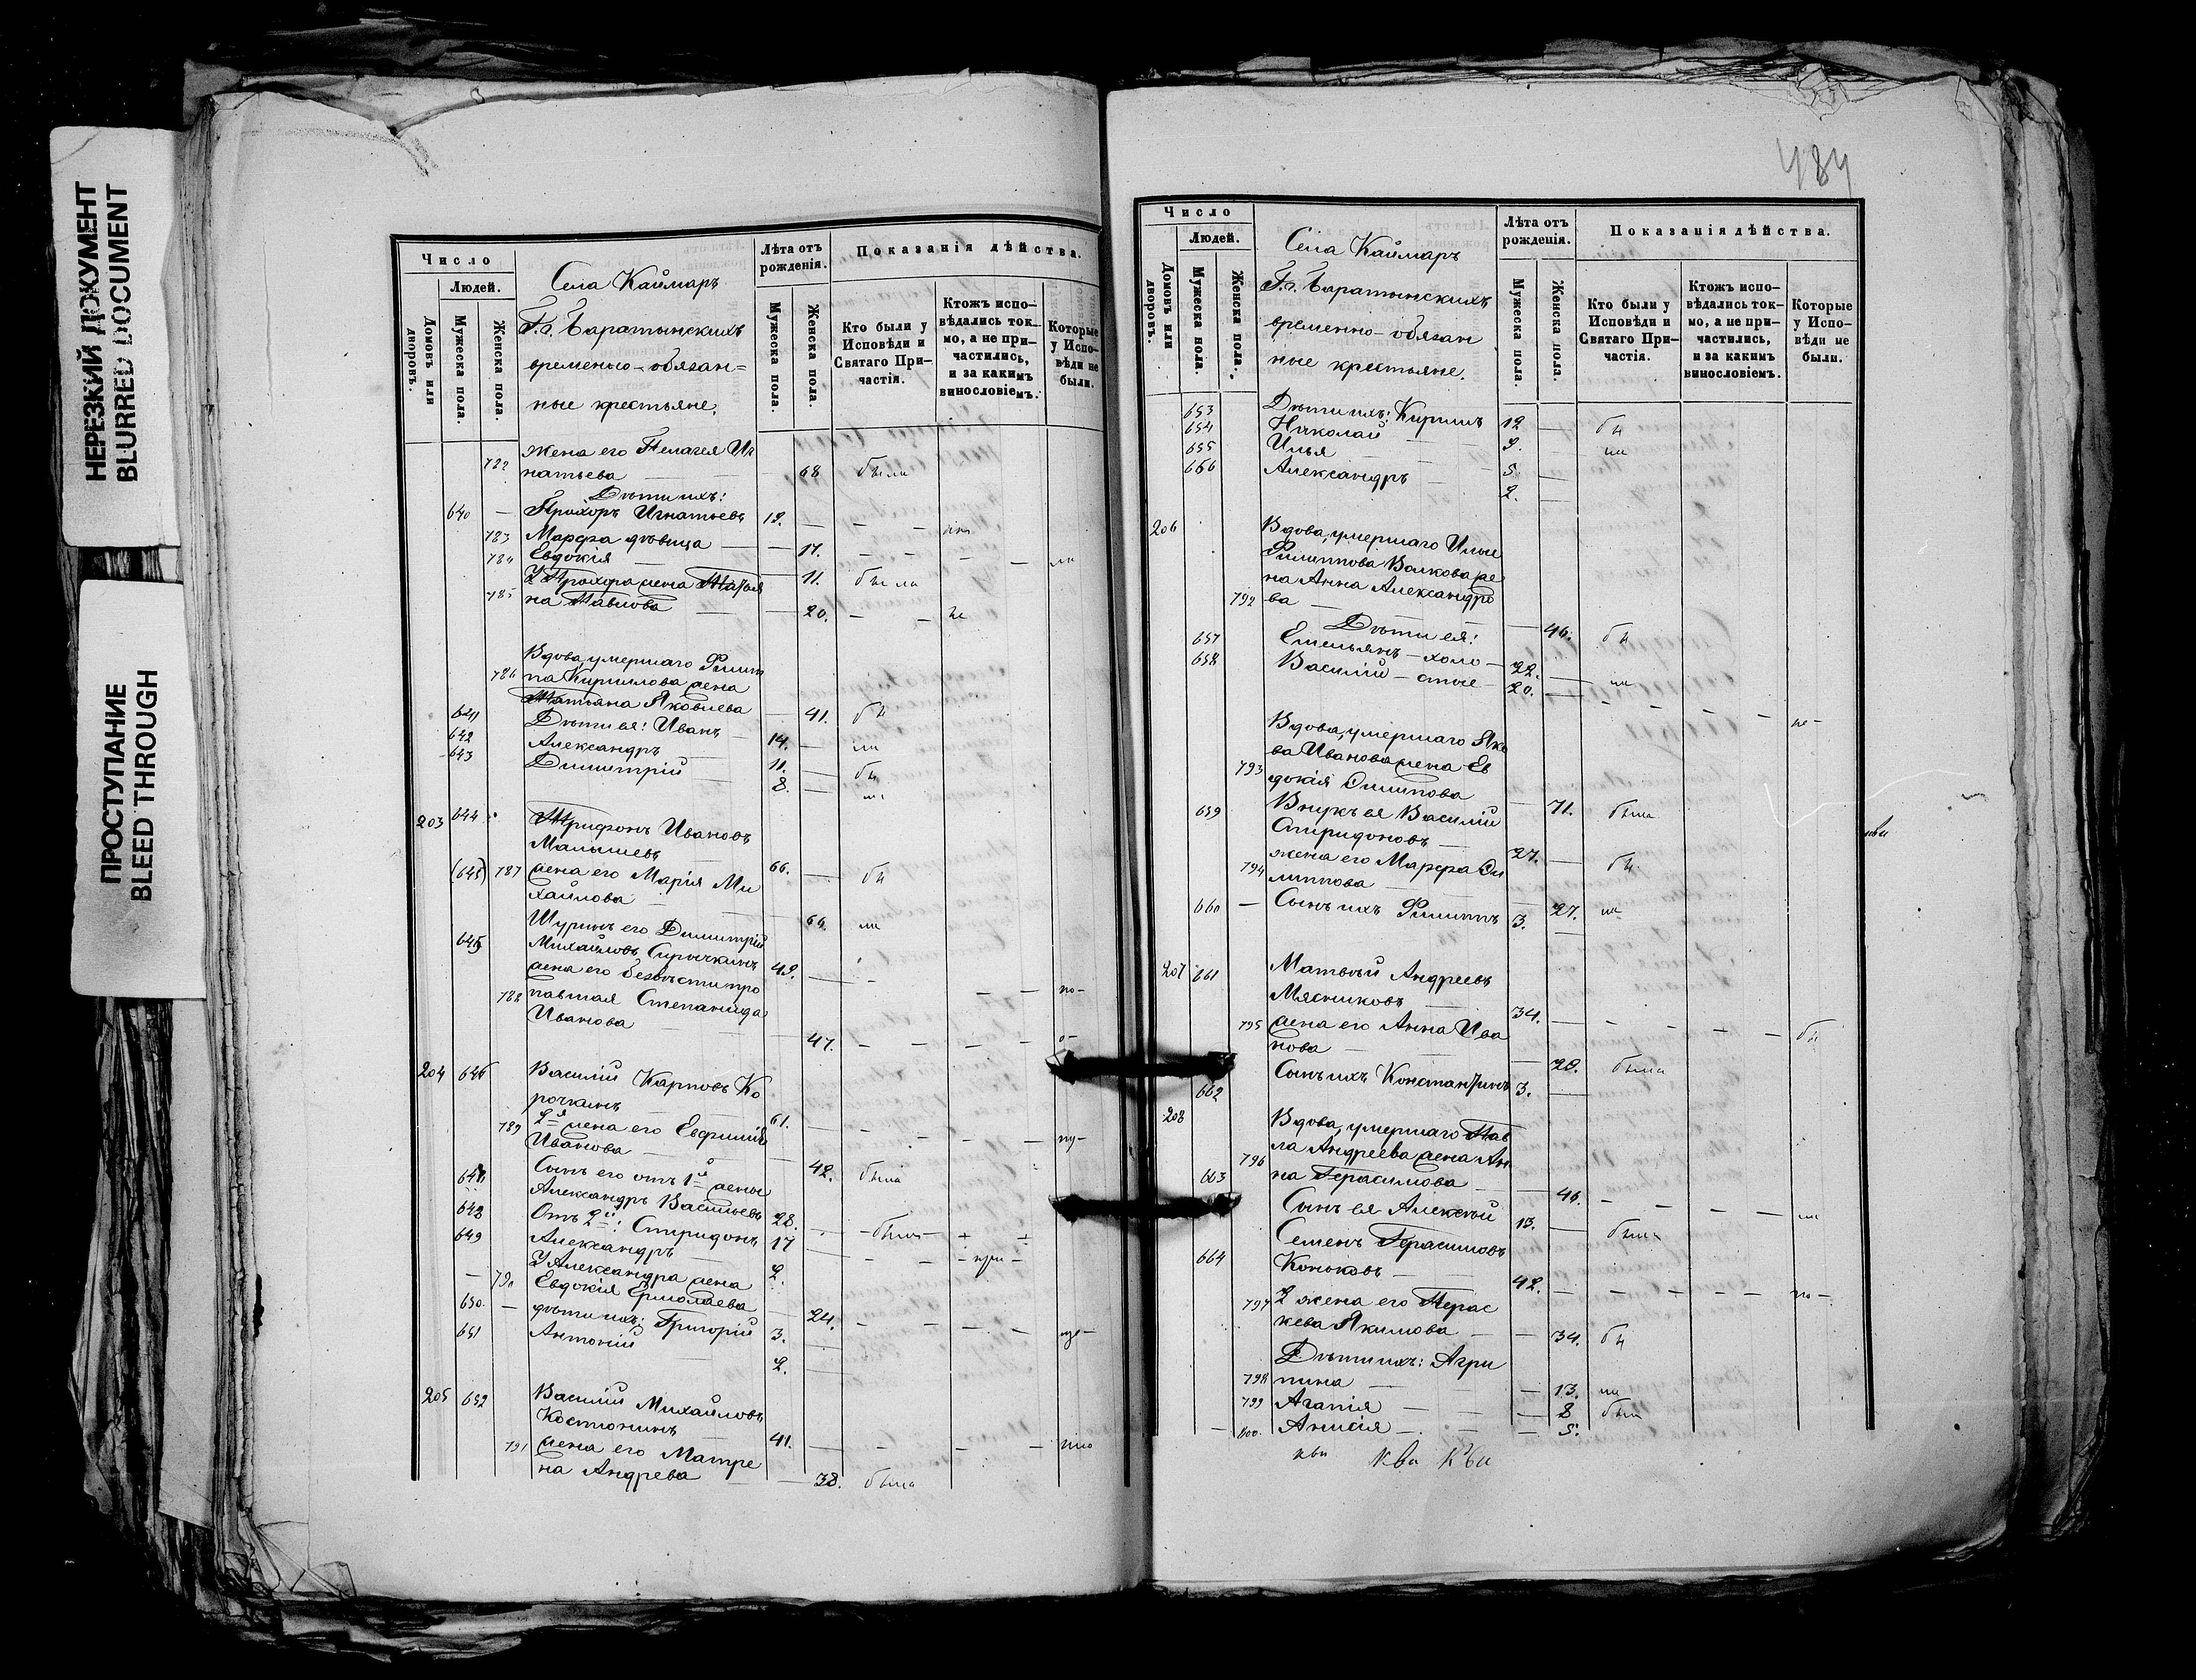 НЕРЕЗКИЙ ДОКУМЕНТ
BLURRED DOCUMENT
ПРОСТУПАНИЕ
BLEED THROUGH
Число
Людей.
Домовъ или дворовъ.
Мужеска пола.
Женска пола.
Села Каймаръ
Г.г. Баратынскихъ
временно-обязан=
ные крестьяне.
Лѣта отъ рожденія.
Мужеска пола.
Женска пола.
Показанія дѣйства.
Кто были у Исповѣди и Святаго При-частія.
Ктожъ испо-вѣдались ток-мо, а не при-частились, и за какимъ винословіемъ.
Которые у Испо-вѣди не были.
жена его Пелагея Иг
782 натьева — — 68 была
Дѣти ихъ:
640 — Прохоръ Игнатьевъ 19. — — —
783 Марфа дѣвица — — 17. — — —
784 Евдокія — 11. была
У Прохора жена Татья
785 на Павлова — — 20. — — не
Вдова, умершаго Филип
786 па Кириллова жена
Татьяна Яковлева — 41. бы
641 Дѣти ея: Иванъ — 14. — ли
642 Александръ 11. — бы
643 Димитрій — 8. — ли
203 644 Трифонъ Ивановъ
Малышевъ — 66. — бы
(645) 787 жена его Марія Ми
хайлова — — 66. ли
Шуринъ его Димитрій
645 Михайловъ Сиричкинъ 49. — — — — по-
жена его безвѣсти про
788 павшая Степанида
Иванова — — 47. — — — — о-
204 646 Василій Карповъ Ко
рочкинъ — 61. — — — — пу-
789 2я жена его Евфимія
Иванова — — 42. была
Сынъ его отъ 1й жены
647 Александръ Васильевъ 28. — былъ
648 Отъ 2й: Спиридонъ 17 — — — при-
649 Александръ — 9.
У Александра жена
— 790 Евдокія Ермолаева — 24. — — — —
650. — дѣти ихъ: Григорій 3. —
651 Антоній — 2. —
205 652 Василій Михайловъ
Костюнинъ — 41. — — — —
791 жена его Матре
на Андрева — 38. была
484
Число
Людей.
Домовъ или дворовъ.
Мужеска пола.
Женска пола.
Села Каймаръ
Г.г. Баратынскихъ
временно-обязан
ные крестьяне.
Лѣта отъ рожденія.
Мужеска пола.
Женска пола.
Показанія дѣйства.
Кто были у Исповѣди и Святаго При-частія.
Ктожъ испо-вѣдались ток-мо, а не при-частились, и за какимъ винословіемъ.
Которые у Испо-вѣди не были.
653 Дѣти ихъ: Кирилъ 12 — бы
654 Николай — 9. — ли
655 Илья — 5 —
656 Александръ — 2. —
206 Вдова, умершаго Ильи
Филиппова Волкова же
на Анна Александро
792 ва — — 46. бы
Дѣти ея:
657 Емельянъ — холо — 22. — ли
658 Василій — стые 20. — — — — — не-
Вдова, умершаго Яко
ва Иванова жена Ев
793 докія Филипова — 71. была
659 Внукъ ея Василій
Спиридоновъ — 27. — бы
жена его Марфа Фи
794 липпова — — 27. ли
660 — Сынъ ихъ Филиппъ 3. —
207 661 Матвѣй Андреевъ
Мясниковъ — 34. — — — — бы
795 жена его Анна Ива
нова — — 28. была
662 Сынъ ихъ Константинъ 3. —
208 Вдова, умершаго Пав
ла Андреева жена Ан
796 на Герасимова — — 46. — — — — ли
663 Сынъ ея Алексѣй 13. — былъ
Семенъ Герасимовъ
664 Коньковъ — 42. — — — — по-
797 2 жена его Парас
кева Якимова — — 34. бы
Дѣти ихъ: Агри
798 пина — — 13. ли
799 Агапія — — 8 была
— 800. Анисія — — 5.